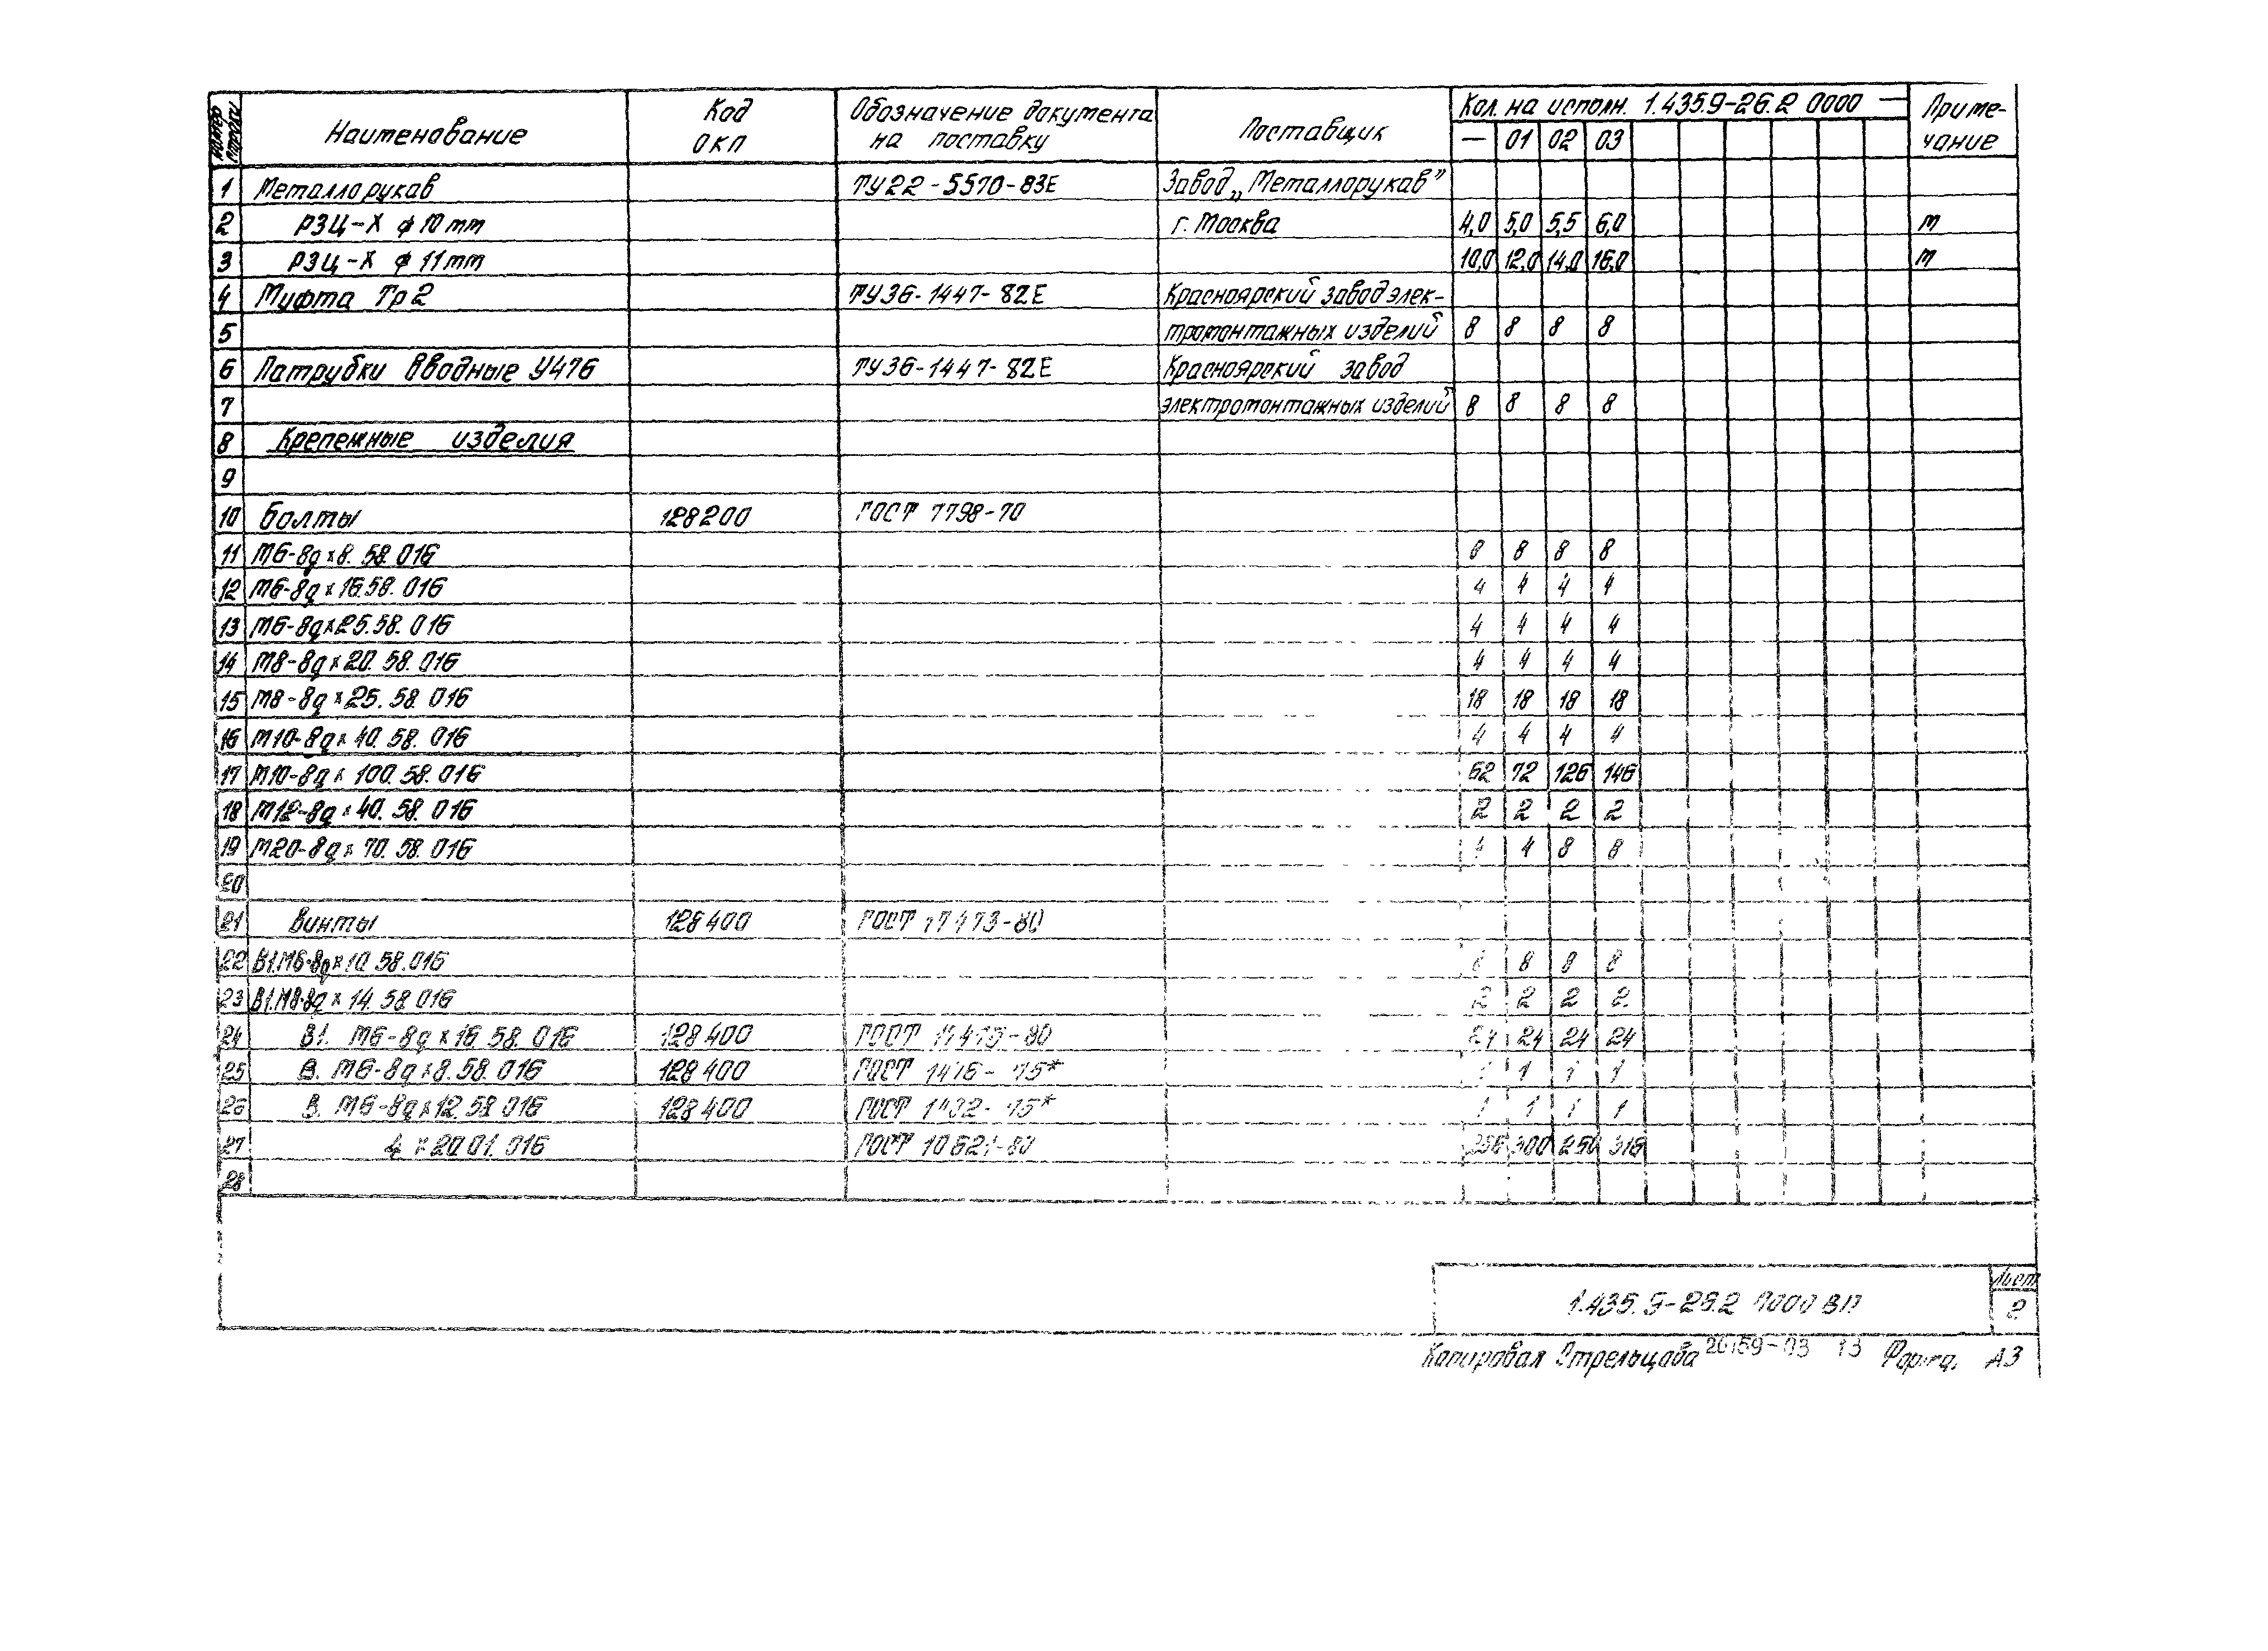 Наименование Код ОКП Обозначение документа на поставку Поставщик Кол. на исполн. 1.435.9-26.2 0000 — Примечание
— 01 02 03
1 Металлорукав ТУ22-5570-83Е Завод „Металлорукав”
2 РЗЦ-Х ф 10 mm г. Москва 4,0 5,0 5,5 6,0 m
3 РЗЦ-Х ф 11 mm 10,0 12,0 14,0 16,0 m
4 Муфта Тр2 ТУ36-1447-82Е Красноярский завод элек-
5 тромонтажных изделий 8 8 8 8
6 Патрубки вводные У476 ТУ36-1447-82Е Красноярский завод
7 электромонтажных изделий 8 8 8 8
8 Крепежные изделия
9
10 Болты 128200 ГОСТ 7798-70
11 М6-8gх8. 58. 016 8 8 8 8
12 М6-8gх16.58. 016 4 4 4 4
13 М6-8gх25.58. 016 4 4 4 4
14 М8-8gх20. 58. 016 4 4 4 4
15 М8-8gх25. 58. 016 18 18 18 18
16 М10-8gх40. 58. 016 4 4 4 4
17 М10-8gх100. 58. 016 72 126 146
18 М12-8gх40. 58. 016 2 2 2 2
19 М20-8gх70. 58. 016 4 8 8
20
21 Винты 128400 ГОСТ 17473-80
22 В1.М6-8gх10.58.016 8 8 8
23 В1.М8-8gх14.58.016 2 2 2 2
24 В1. М6-8gх16.58. 016 128400 ГОСТ 24 24 24 24
25 В. М6-8gх8.58. 016 128400 ГОСТ 1476-75* 1 1 1
26 В. М6-8gх12.58.016 128400 ГОСТ 1 1 1 1
27 4х20.01. 016 ГОСТ 300 316
28
1.435.9-26.2 0000 ВП
Лист
2
Копировал Стрельцова 20159-03 13 Формат А3